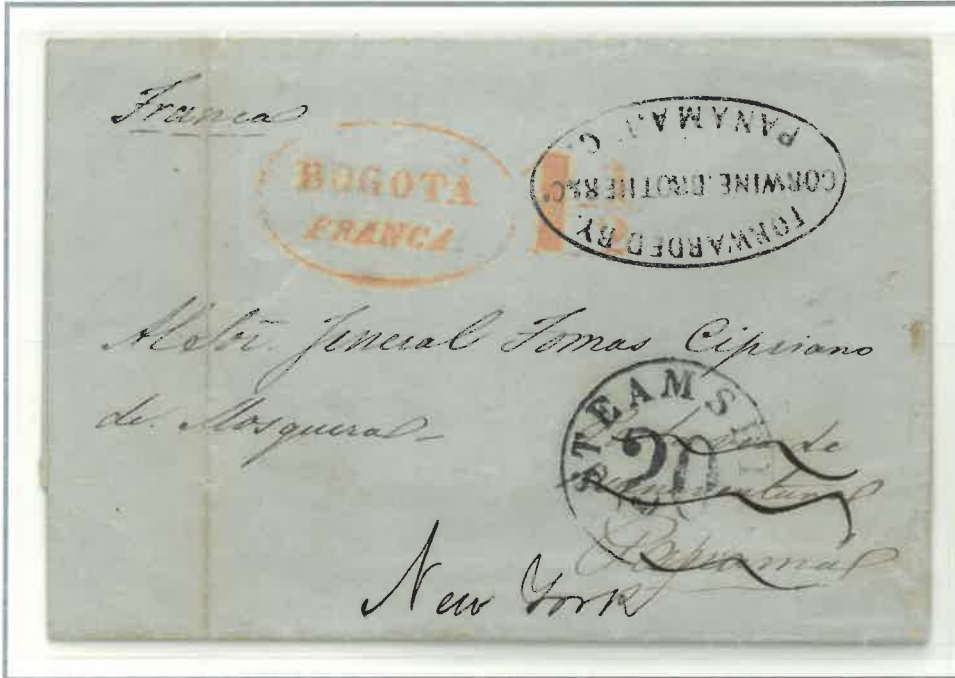 Franca
BOGOTÁ
FRANCA
1
FORWARDED BY
CORWINE.BROTHERS&Cº
PANAMA.
Al Sōr. Jeneral Tomas Cipriano
de Mosquera
STEAMSHIP
20
de
New York